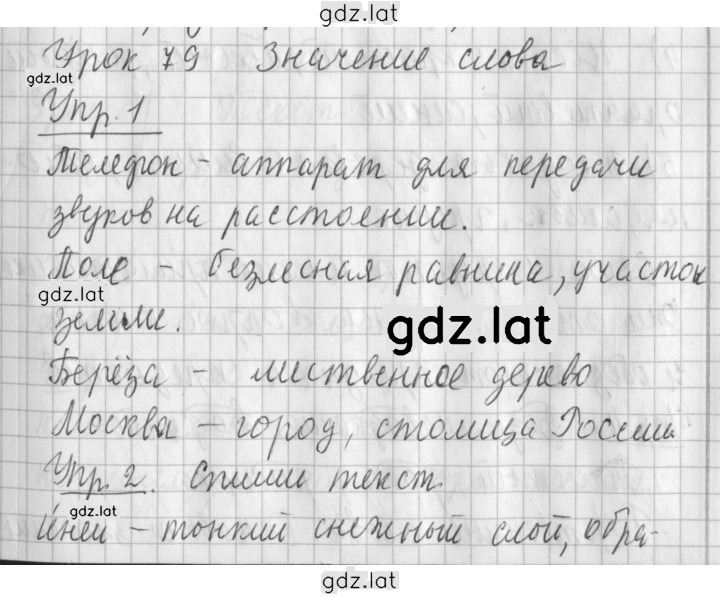 gdz.lat
Урок 79 Значение слова
gdz.lat
Упр. 1
Телефон - аппарат для передачи
звуков на расстоянии.
Поле - безлесная равнина, участок
gdz.lat
земли.
gdz.lat
Берёза - лиственное дерево
Москва - город, столица России
Упр. 2. Спиши текст
gdz.lat
Иней - тонкий снежный слой, обра-
gdz.lat